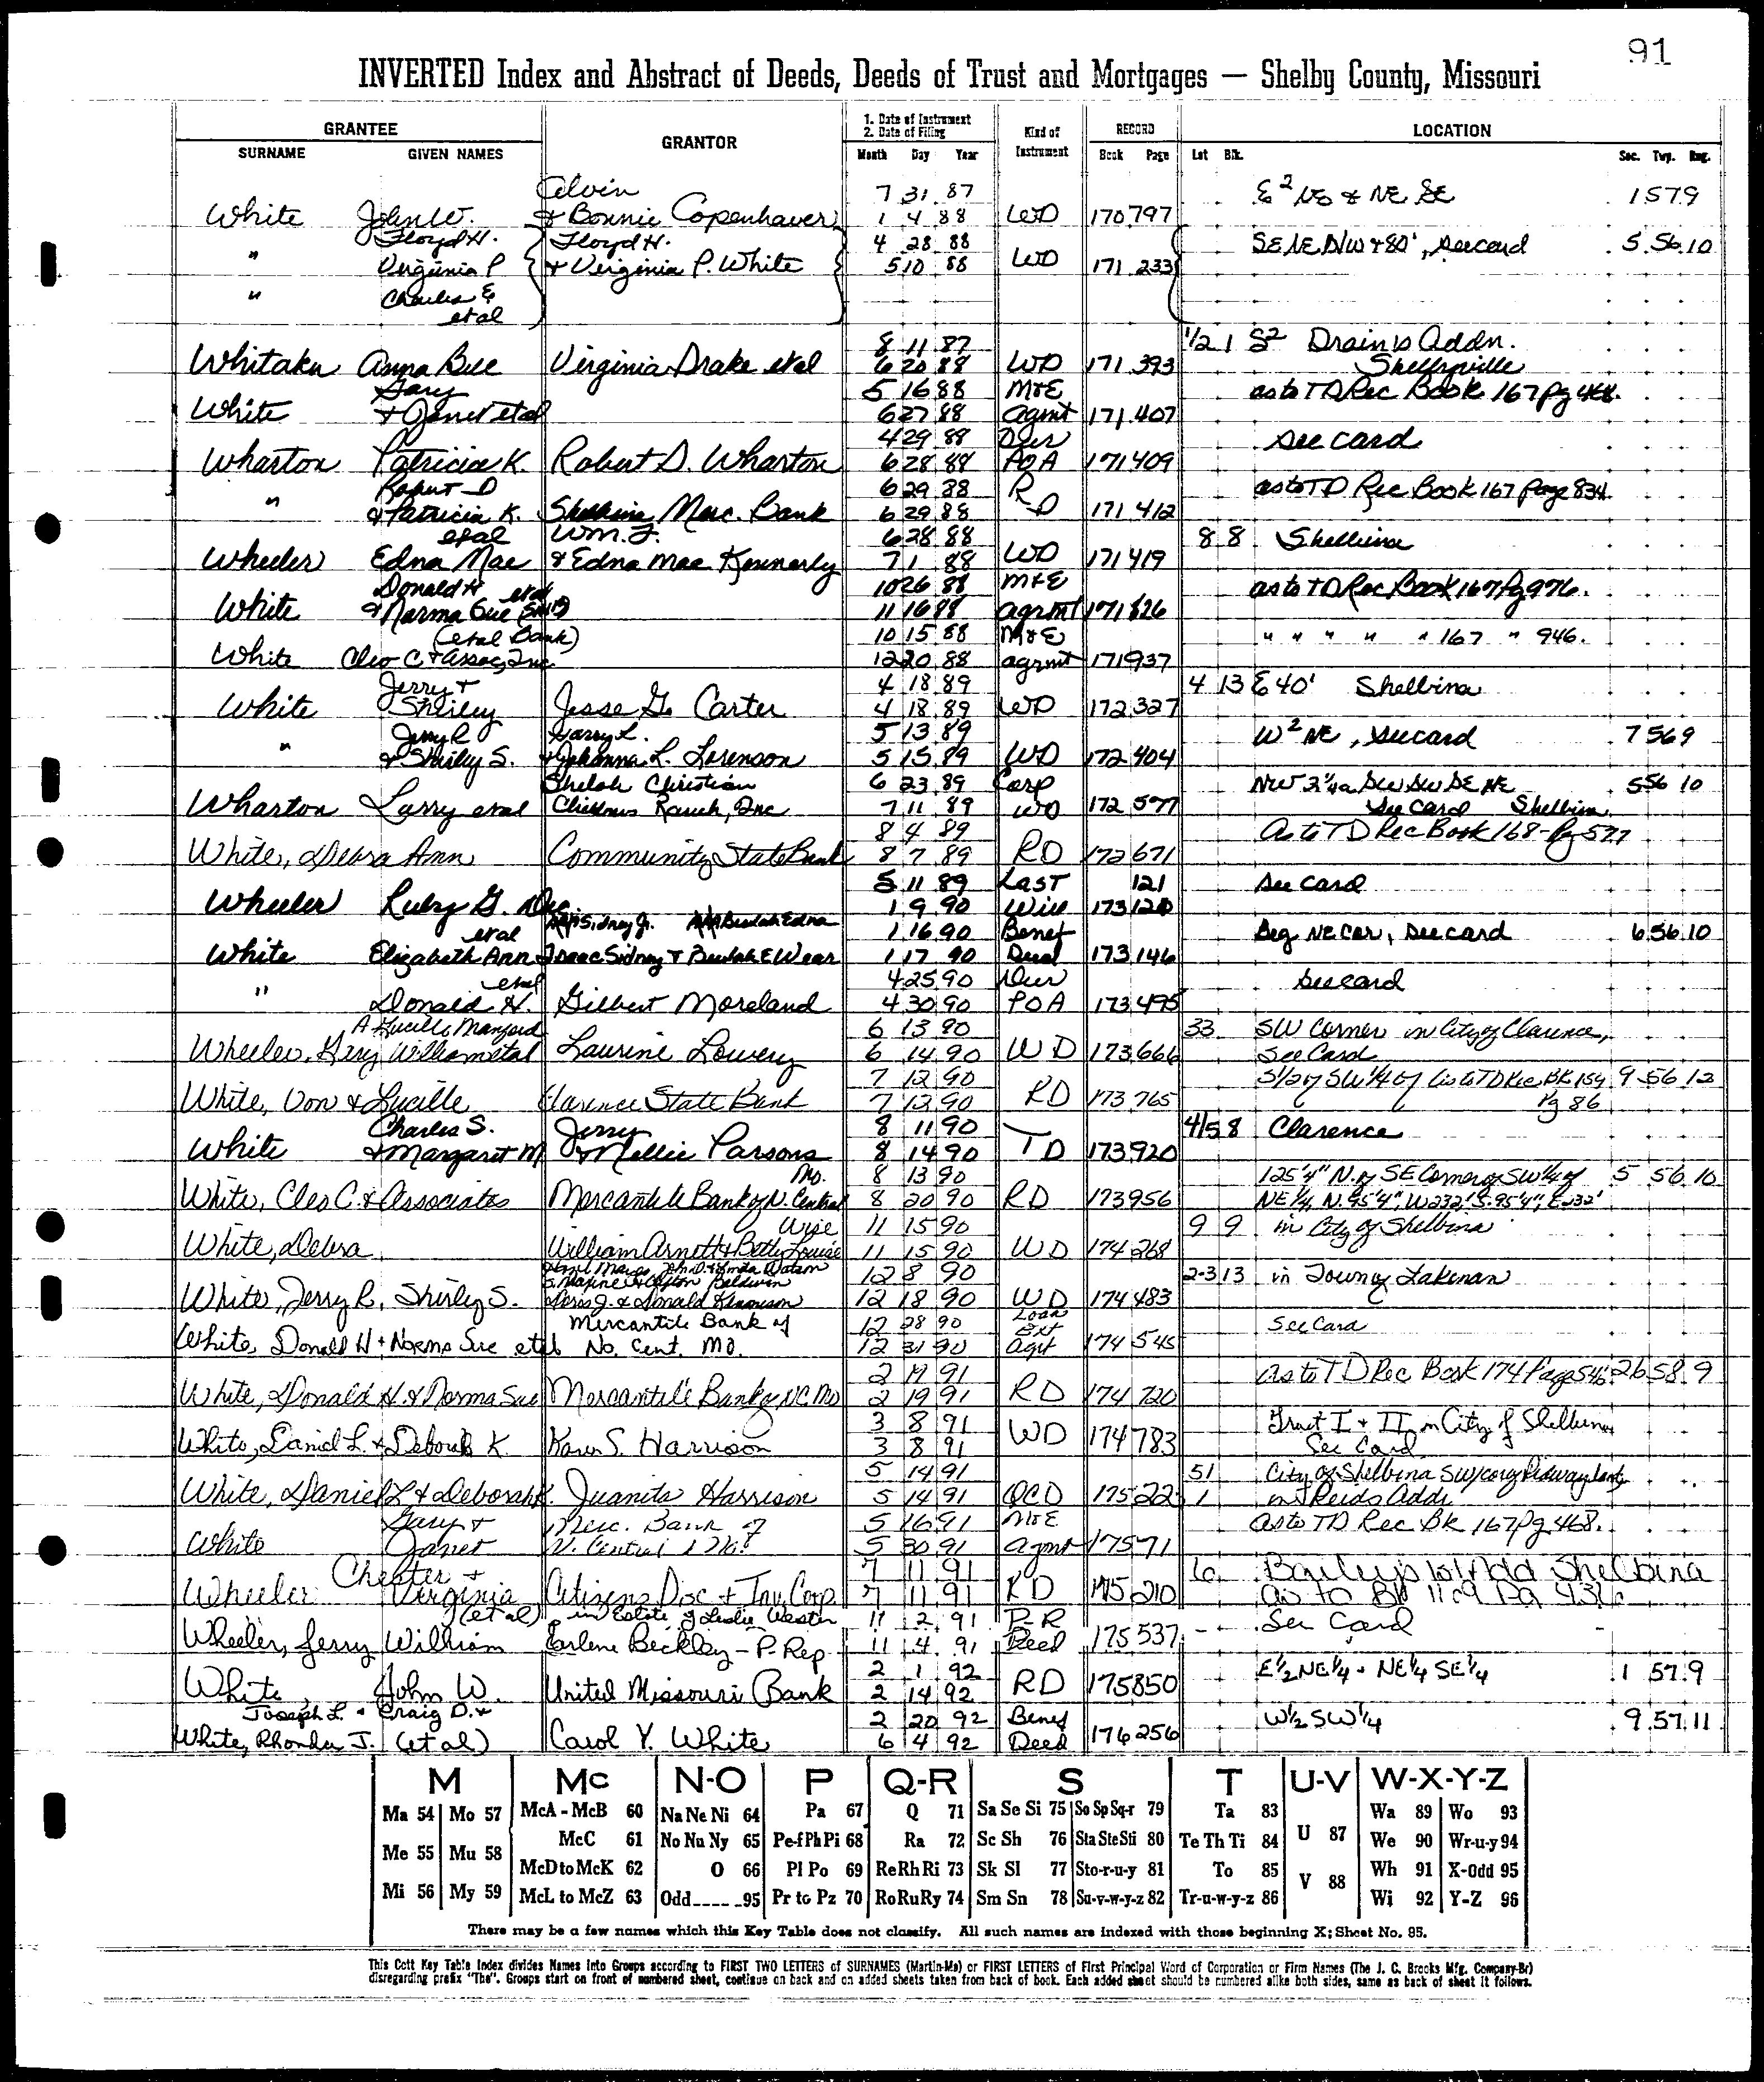 91
INVERTED Index and Abstract of Deeds, Deeds of Trust and Mortgages — Shelby County, Missouri
GRANTEE GRANTOR 1. Date of Instrument 2. Date of Filing Kind of Instrument RECORD LOCATION
SURNAME GIVEN NAMES Month Day Year Book Page Lot Blk. Sec. Twp. Rng.
7 31 87 1 57 9
White John W. & Bonnie Copenhaver 1 4 88 WD 170 797
Floyd H. Floyd H. 4 28 88 5 56 10
" Virginia P & Virginia P. White 5 10 88 WD 171 233
" Charles E
etal
8 11 87 1/2 1 S2 Drain's Addn.
Whitaker Anna Bee Virginia Drake etal 6 20 88 WD 171 393 Shelbyville
Gary 5 16 88 M&E as to TD Rec Book 167 pg 468.
White & Janet etal 6 27 88 agmt 171 407
4 29 88 Dur see card
Wharton Patricia K. Robert D. Wharton 6 28 88 POA 171 409
Robert D 6 29 88 R as to TD Rec Book 167 page 834
" & Patricia K. Shelbina Merc. Bank 6 29 88 D 171 412
etal Wm. F. 6 28 88 8 8 Shelbina
Wheeler Edna Mae & Edna Mae Kennerly 7 1 88 WD 171 419
Donald H etal 10 26 88 M&E as to TD Rec Book 167 Pg 976.
White & Norma Sue 11 16 88 agrmt 171 826
(etal Bank) 10 15 88 M&E " " " " " 167 " 946.
White Cleo C. & Assoc, Inc 12 20 88 agrmt 171 937
Jerry & 4 18 89 4 13 E 40' Shelbina
White Shirley Jesse G. Carter 4 18 89 WD 172 327
Jerry R Garry L. 5 13 89 W2 NE, see card 7 56 9
" & Shirley S. & Johanna L. Lorenson 5 15 89 WD 172 404
Shiloh Christian 6 23 89 Corp 5 56 10
Wharton Larry etal Childrens Ranch, Inc 7 11 89 WD 172 577 See Card Shelbina
8 4 89 As to TD Rec Book 168 - Pg 577
White, Debra Ann Community State Bank 8 7 89 RD 172 671
5 11 89 Last 121 see card
Wheeler Ruby G. Dec. 1 9 90 Will 173 120
etal Sidney Jr. Beulah Edna 1 16 90 Benef Beg NE Cor, see card 6 56 10
White Elizabeth Ann Isaac Sidney & Beulah E Wear 1 17 90 Deed 173 146
etal 4 25 90 Dur see card
" Donald H. Gilbert Moreland 4 30 90 POA 173 495
A Lucille Manford 6 13 90 33 SW Corner in City of Clarence,
Wheeler, William etal Laurine Lowery 6 14 90 WD 173 666 See Card
7 12 90 S1/2 of SW 1/4 of As to TD Rec BK 154 9 56 12
White, Von & Lucille Clarence State Bank 7 13 90 RD 173 765 Pg 86
Charles S. Jerry 8 11 90 4/5 8 Clarence
White & Margaret M & Nellie Parsons 8 14 90 TD 173 920
Mo. 8 13 90 125'4" N. of SE Corner of SW 1/4 of 5 56 10
White, Cleo C. & Associates Mercantile Bank of N. Central 8 20 90 RD 173 956 NE 1/4, N. 95'4", W 232', S. 95'4", E 232'
Wise 11 15 90 9 9 in City of Shelbina
White, Debra William Arnett & Betty Louise 11 15 90 WD 174 268
John D. & Linda Watson 12 8 90 2-3 13 in Town of Lakenan
S. Maxine & Clifton Baldwin
White, Jerry R. Shirley S. Doris J. & Donald 12 18 90 WD 174 483
Mercantile Bank of 12 28 90 Loan Ext See Card
White, Donald H & Norma Sue etal No. Cent. MO. 12 31 90 Agt 174 545
2 19 91 as to TD Rec Book 174 Page 546 26 58 9
White, Donald H. & Norma Sue Mercantile Bank of NC Mo 2 19 91 RD 174 720
3 8 91 Tract I & II in City of Shelbina
White, Daniel L. & Deborah K. Karen S. Harrison 3 8 91 WD 174 783 See Card
5 14 91 51 City of Shelbina SW/cor of Ridgway
White, Daniel L & Deborah K. Juanita Harrison 5 14 91 QCD 175 22 1 in Reids Addn
Gary & Merc. Bank of 5 16 91 M&E As to TD Rec Bk 167 Pg 468.
White Janet N. Central Mo. 5 30 91 agmt 175 71
Chester & 7 11 91 6 Bailey's Add Shelbina
Wheeler Virginia Citizens Disc & Inv. Corp 7 11 91 RD 175 210 as to BK 1169 Pg
(etal) in Estate of Leslie Western 11 2 91 P-R See Card
Wheeler, Jerry William Earlene Beckley - P. Rep 11 4 91 Deed 175 537
2 1 92 E 1/2 NE 1/4 - NE 1/4 SE 1/4 1 57 9
White, John W. United Missouri Bank 2 14 92 RD 175 850
Joseph L. & Craig D. & 2 20 92 Benef W 1/2 SW 1/4 9 57 11
White, Rhonda J. (etal) Carol Y. White 6 4 92 Deed 176 256
M Mc N-O P Q-R S T U-V W-X-Y-Z
Ma 54 Mo 57 McA - McB 60 Na Ne Ni 64 Pa 67 Q 71 Sa Se Si 75 So Sp Sq-r 79 Ta 83 U 87 Wa 89 Wo 93
Me 55 Mu 58 McC 61 No Nu Ny 65 Pe-f Ph Pi 68 Ra 72 Sc Sh 76 Sta Ste Sti 80 Te Th Ti 84 We 90 Wr-u-y 94
McD to McK 62 O 66 Pl Po 69 Re Rh Ri 73 Sk Sl 77 Sto-r-u-y 81 To 85 V 88 Wh 91 X-Odd 95
Mi 56 My 59 McL to McZ 63 Odd 95 Pr to Pz 70 Ro Ru Ry 74 Sm Sn 78 Su-v-w-y-z 82 Tr-u-w-y-z 86 Wi 92 Y-Z 96
There may be a few names which this Key Table does not classify. All such names are indexed with those beginning X; Sheet No. 95.
This Cott Key Table Index divides Names into Groups according to FIRST TWO LETTERS of SURNAMES (Martin-Ma) or FIRST LETTERS of First Principal Word of Corporation or Firm Names (The J. C. Brooks Mfg. Company-Br)
disregarding prefix "The". Groups start on front of numbered sheet, continue on back and on added sheets taken from back of book. Each added sheet should be numbered alike both sides, same as back of sheet it follows.